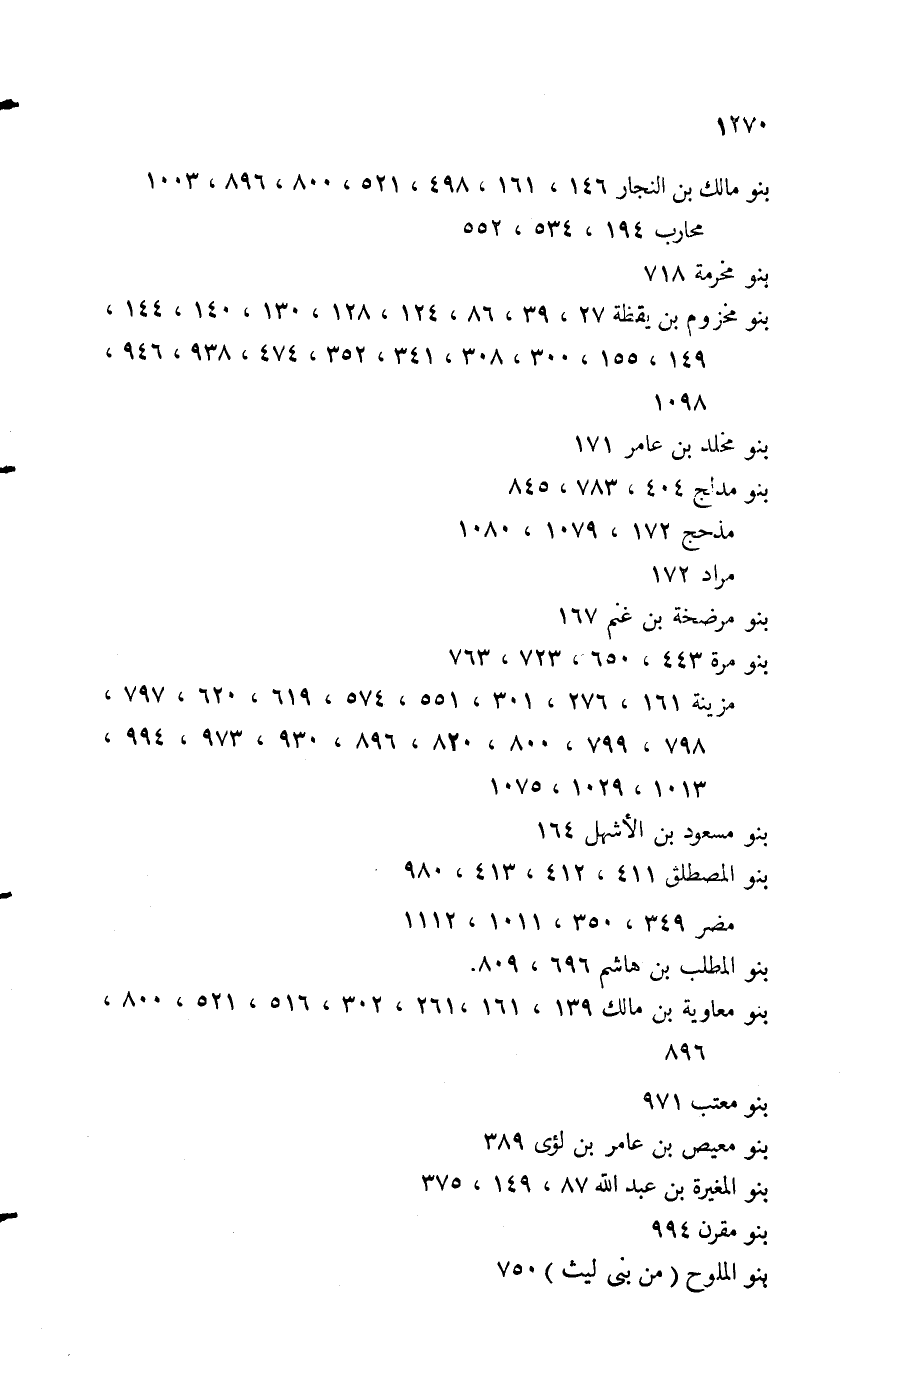 ١٢٧٠
بنو مالك بن النجار ١٤٦ ، ١٦١ ، ٤٩٨ ، ٥٢١ ، ٨٠٠ ، ٨٩٦ ، ١٠٠٣
محارب ١٩٤ ، ٥٣٤ ، ٥٥٢
بنو مخرمة ٧١٨
بنو مخزوم بن يقظة ٢٧ ، ٣٩ ، ٨٦ ، ١٢٤ ، ١٢٨ ، ١٣٠ ، ١٤٠ ، ١٤٤ ،
١٤٩ ، ١٥٥ ، ٣٠٠ ، ٣٠٨ ، ٣٤١ ، ٣٥٢ ، ٤٧٤ ، ٩٣٨ ، ٩٤٦ ،
١٠٩٨
بنو مخلد بن عامر ١٧١
بنو مدلج ٤٠٤ ، ٧٨٣ ، ٨٤٥
مذحج ١٧٢ ، ١٠٧٩ ، ١٠٨٠
مراد ١٧٢
بنو مرضخة بن غنم ١٦٧
بنو مرة ٤٤٣ ، ٦٥٠ ، ٧٢٣ ، ٧٦٣
مزينة ١٦١ ، ٢٧٦ ، ٣٠١ ، ٥٥١ ، ٥٧٤ ، ٦١٩ ، ٦٢٠ ، ٧٩٧ ،
٧٩٨ ، ٧٩٩ ، ٨٠٠ ، ٨٢٠ ، ٨٩٦ ، ٩٣٠ ، ٩٧٣ ، ٩٩٤ ،
١٠١٣ ، ١٠٢٩ ، ١٠٧٥
بنو مسعود بن الأشهل ١٦٤
بنو المصطلق ٤١١ ، ٤١٢ ، ٤١٣ ، ٩٨٠
مضر ٣٤٩ ، ٣٥٠ ، ١٠١١ ، ١١١٢
بنو المطلب بن هاشم ٦٩٦ ، ٨٠٩.
بنو معاوية بن مالك ١٣٩ ، ١٦١ ،٢٦١ ، ٣٠٢ ، ٥١٦ ، ٥٢١ ، ٨٠٠ ،
٨٩٦
بنو معتب ٩٧١
بنو معيص بن عامر بن لؤى ٣٨٩
بنو المغيرة بن عبد الله ٨٧ ، ١٤٩ ، ٣٧٥
بنو مقرن ٩٩٤
بنو الملوح ( من بنى ليث ) ٧٥٠